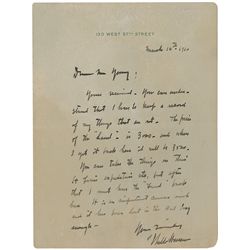 130 WEST 57TH STREET
March 16th, 1910
Dear Mr Young:
Yours received. You can under-
stand that I have to keep a record
of my things that are out. The price
of the "hound" is 3000. and when
I get it back here it will be 3500.
You can take the things on this
at their expiration etc, but after
that I must have the hound back
here. It is an important canvas and
and it has been out in the
enough.
Yours sincerely
Childe Hassam